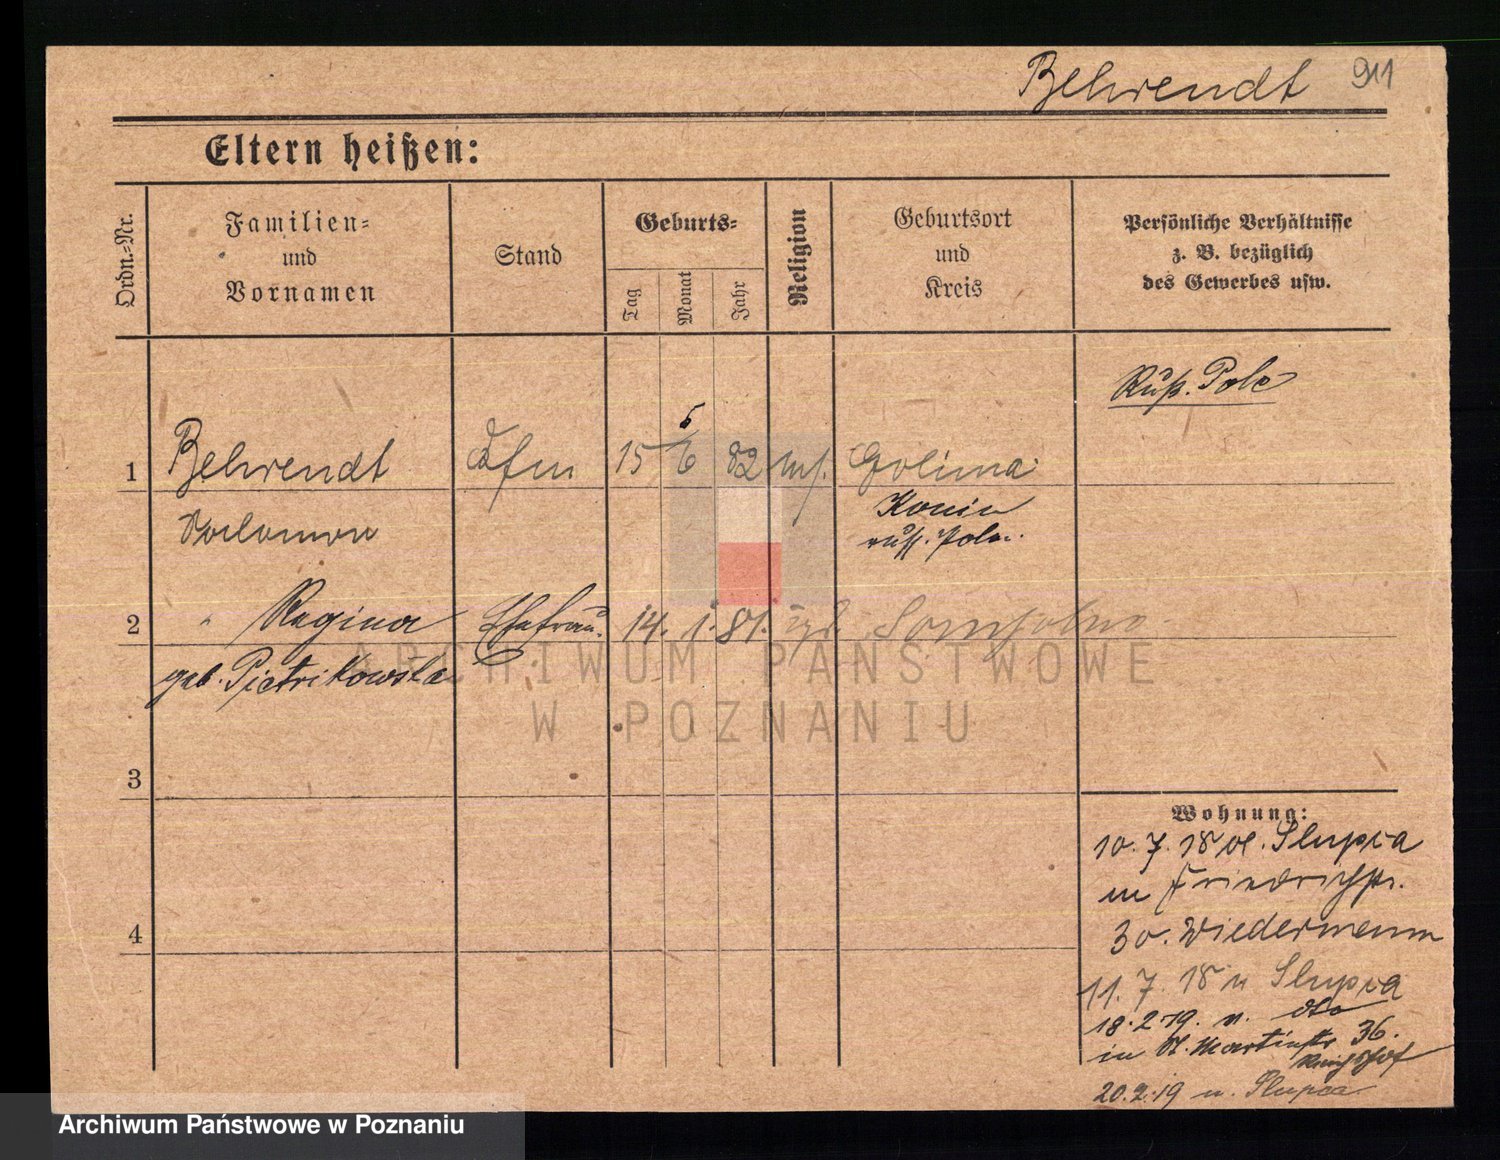 Behrendt 911
Eltern heißen:
Ordn.=Nr.
Familien=
und
Vornamen
Stand
Geburts=
Tag
Monat
Jahr
Religion
Geburtsort
und
Kreis
Persönliche Verhältnisse
z. B. bezüglich
des Gewerbes usw.
Russ. Pole
1 Behrendt Kfm 15 6 82 Golina
5
Salomon
Konin
russ. Polen
2 " Regina Ehefrau. 14. 1. 81.
geb. Pietrikowska
ARCHIWUM PAŃSTWOWE
W POZNANIU
3
4
Wohnung:
10. 7. 18 v. Slupca
in Friedrichstr.
30. Wiedermann
11. 7. 18 n Slupca
18.2.19. v. dto
in St. Martinstr 36.
Reichshof
20.2.19 n. Slupca
Archiwum Państwowe w Poznaniu